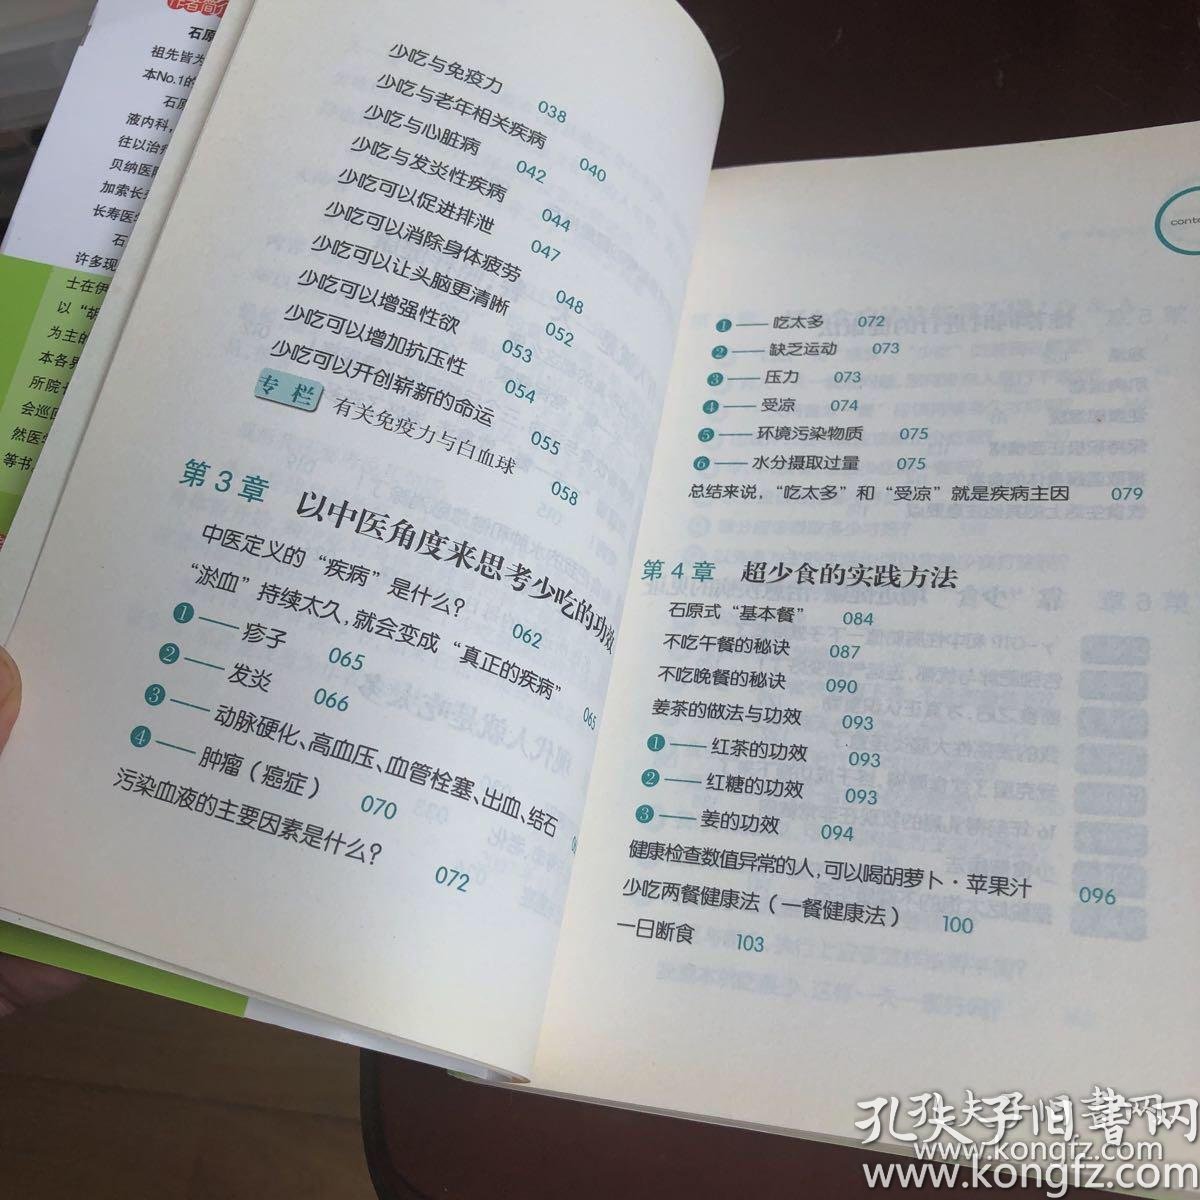 石原
祖先皆为
本No.1的
石原
液内科,
往以治疗
贝纳医
加索长寿
长寿医学
许多现
士在伊
以“胡
为主的
本各界
所院
会巡回
然医学
等书,
少吃与免疫力 038
少吃与老年相关疾病 040
少吃与心脏病 042
少吃与发炎性疾病 044
少吃可以促进排泄 047
少吃可以消除身体疲劳 048
少吃可以让头脑更清晰 052
少吃可以增强性欲 053
少吃可以增加抗压性 054
少吃可以开创崭新的命运 055
专栏 有关免疫力与白血球 058
第3章 以中医角度来思考少吃的功效
中医定义的“疾病”是什么? 062
“淤血”持续太久,就会变成“真正的疾病” 065
❶——疹子 065
❷——发炎 066
❸——动脉硬化、高血压、血管栓塞、出血、结石
❹——肿瘤(癌症) 070
污染血液的主要因素是什么? 072
❶——吃太多 072
❷——缺乏运动 073
❸——压力 073
❹——受凉 074
❺——环境污染物质 075
❻——水分摄取过量 075
总结来说,“吃太多”和“受凉”就是疾病主因 079
第4章 超少食的实践方法
石原式“基本餐” 084
不吃午餐的秘诀 087
不吃晚餐的秘诀 090
姜茶的做法与功效 093
❶——红茶的功效 093
❷——红糖的功效 093
❸——姜的功效 094
健康检查数值异常的人,可以喝胡萝卜·苹果汁 096
少吃两餐健康法(一餐健康法) 100
一日断食 103
孔夫子旧书网
www.kongfz.com